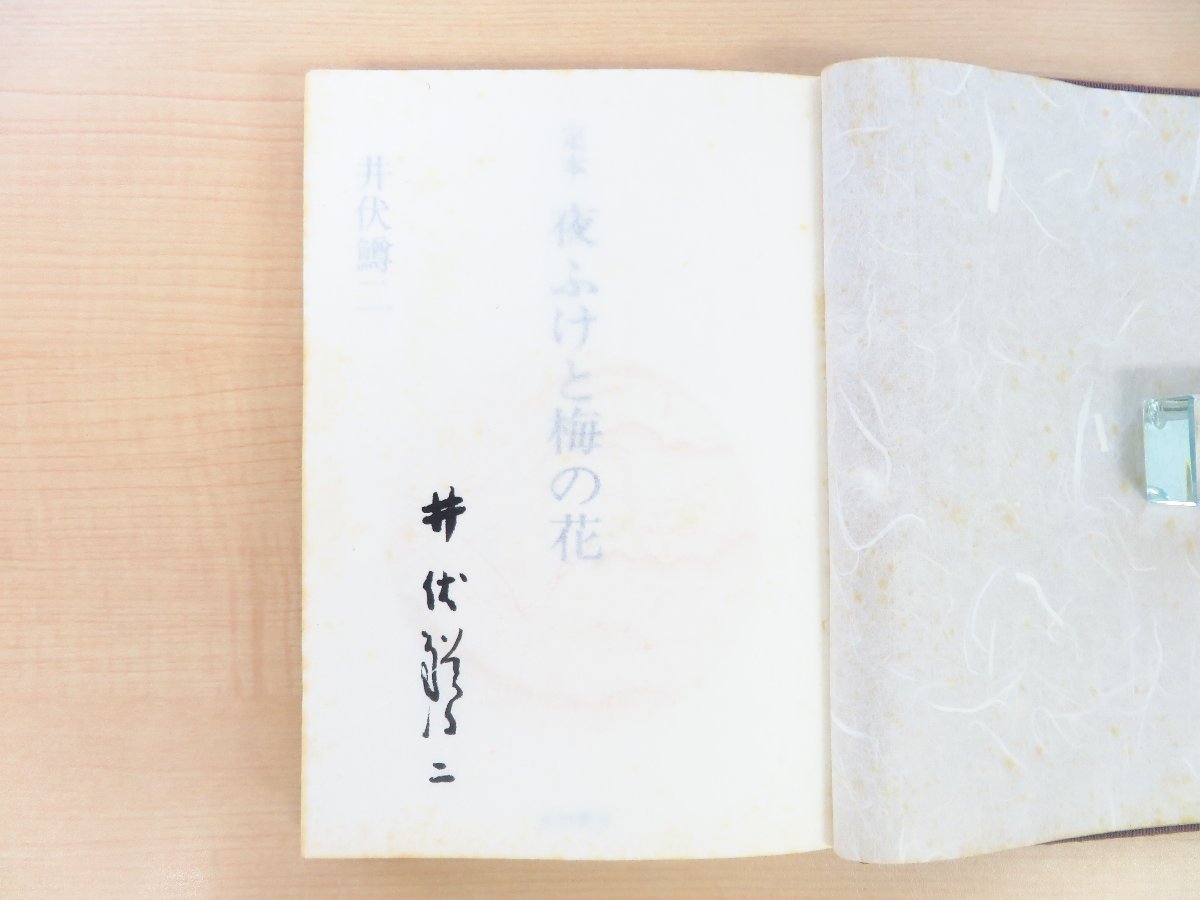 定本 夜ふけと梅の花
井伏鱒二
井伏鱒二